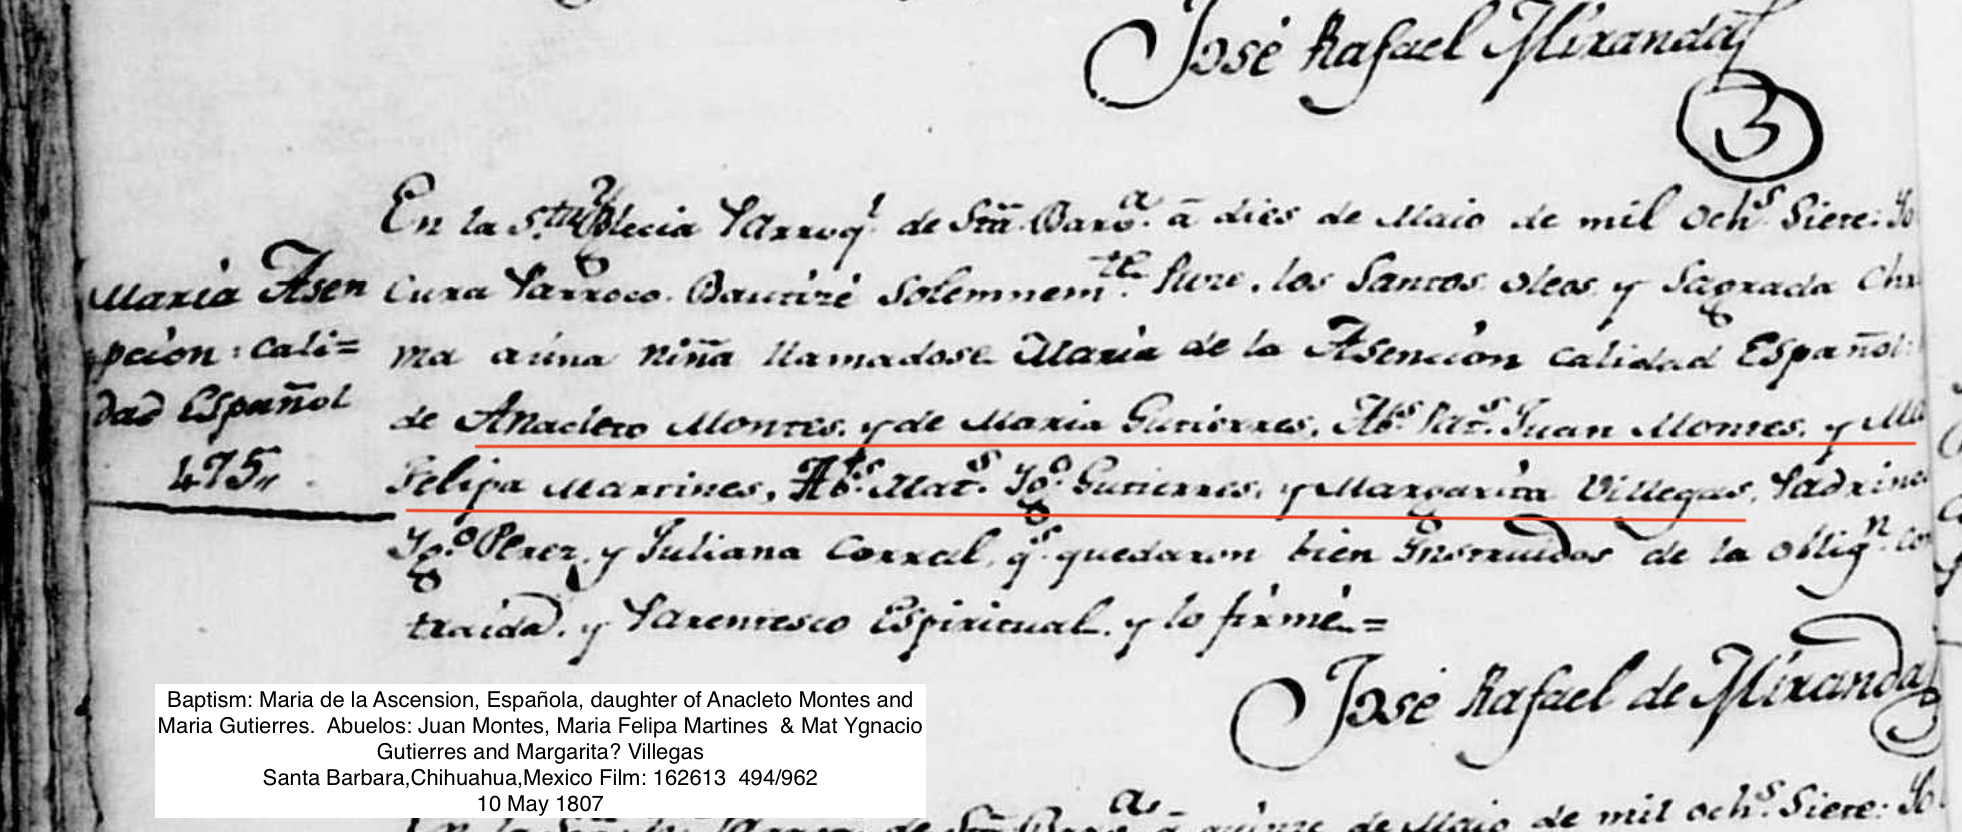 José Rafael Miranda
3
En la S.ta Yglecia Parroq.l de Sta. Barb.a a dies de Maio de mil och.s Siete: Yo
Maria Asen
pcion: cali=
dad Español
475,,
Cura Parroco. Bautizé Solemnem.te Puse, los Santos oleos y Sagrada Chr
ma a úna Niña llamadose Maria de la Asencion calidad Español:
de Anacleto Montes, y de Maria Gutierres, Ab.s Pat.s Juan Montes, y Ma
Felipa Martines, Ab.s Mat.s Yg.o Gutierres, y Margarita Villegas, Padrinos
Yg.o Perez, y Juliana Corral, q.s quedaron bien Instruidos de la oblig.n con
traida, y Parentesco Espiritual, y lo firmé=
José Rafael de Miranda
Baptism: Maria de la Ascension, Española, daughter of Anacleto Montes and
Maria Gutierres. Abuelos: Juan Montes, Maria Felipa Martines & Mat Ygnacio
Gutierres and Margarita? Villegas
Santa Barbara,Chihuahua,Mexico Film: 162613 494/962
10 May 1807
de Maio de mil och.s Siete: Yo